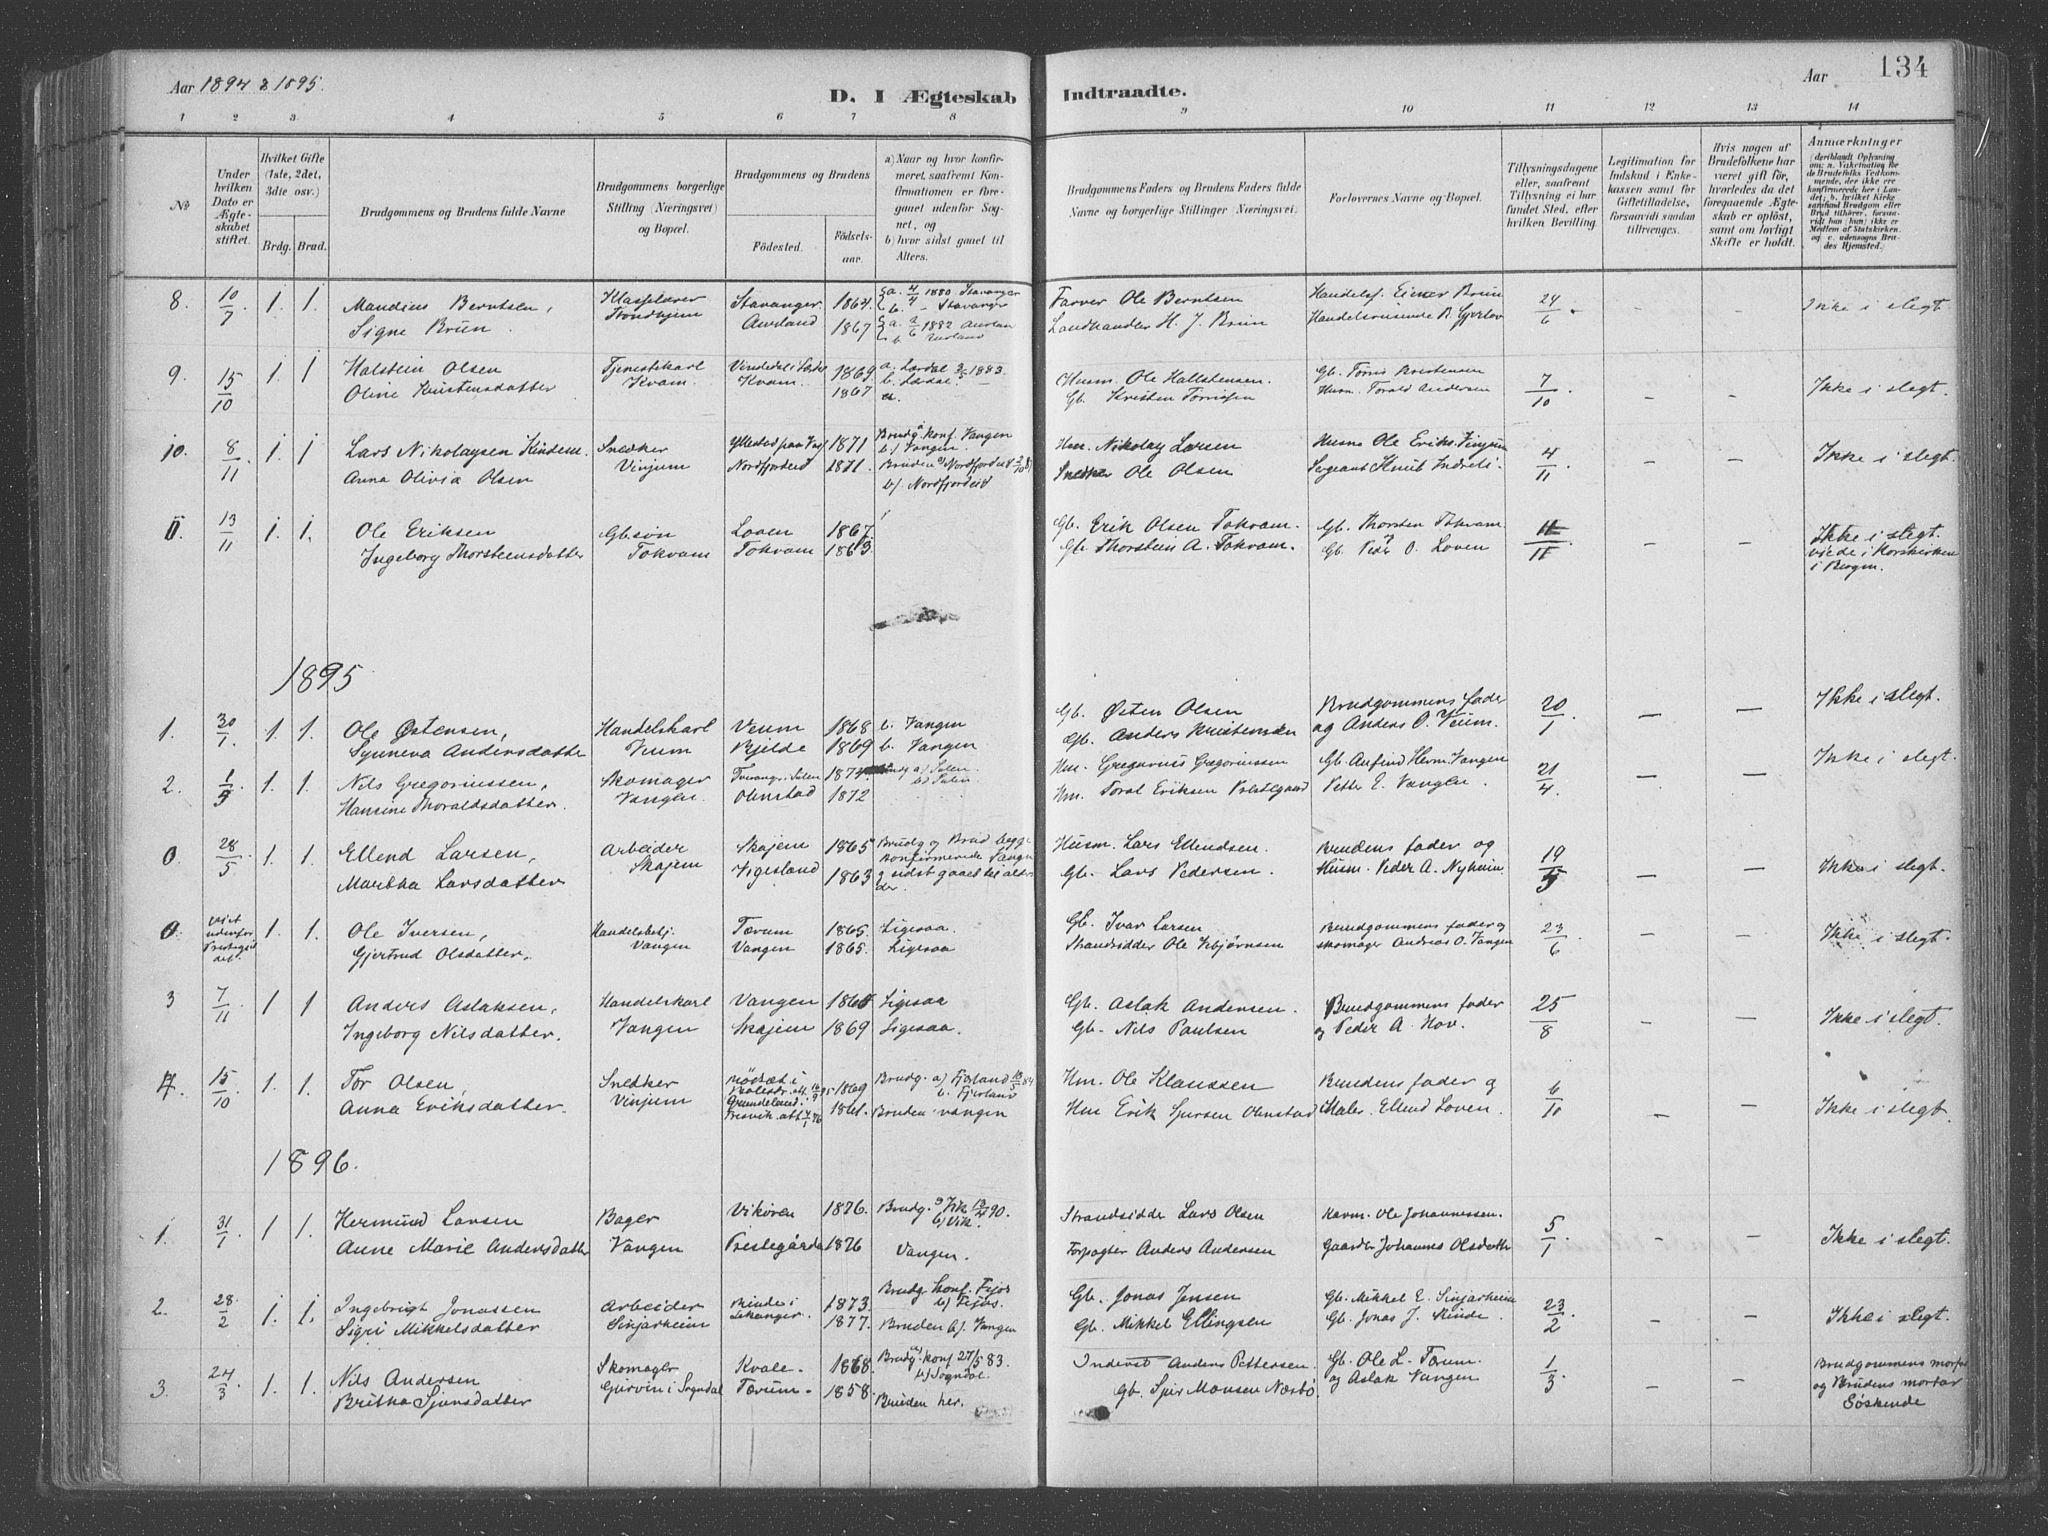 Aar 1894 & 1895.
D. I Ægteskab Indtraadte.
Aar 134
1 2 3 4 5 6 7 8 9 10 11 12 13 14
No
Under hvilken Dato er Ægteskabet stiftet.
Hvilket Gifte (1ste, 2det, 3dte osv.)
Brdg. Brud.
Brudgommens og Brudens fulde Navne
Brudgommens borgerlige Stilling (Næringsvei) og Bopæl.
Brudgommens og Brudens
Fødested.
Fødselsaar.
a) Naar og hvor konfirmeret, saafremt Konfirmationen er foregaaet udenfor Sognet, og
b) hvor sidst gaaet til Alters.
Brudgommens Faders og Brudens Faders fulde Navne og borgerlige Stillinger (Næringsvei).
Forlovernes Navne og Bopæl.
Tillysningsdagene eller, saafremt Tillysning ei har fundet Sted, efter hvilken Bevilling.
Legitimation for Indskud i Enkekassen samt for Giftetilladelse, forsaavidt saadan tiltrænges.
Hvis nogen af Brudefolkene har været gift før, hvorledes da det foregaaende Ægteskab er opløst, samt om lovligt Skifte er holdt.
Anmærkninger
8. 10/7 1. 1. Mandius Berntsen, Klasselærer Stavanger 1864 a. 4/4 1880 Stavanger Farver Ole Berntsen Handelsf. Einer Brun 24/6 Ikke i slegt.
Signe Brun. Trondhjem Aurland 1867 b. Stavanger a. 2/6 1882 Aurland Landhandler H. J. Brun Handelsreisende
9. 15/10 1. 1 Halstein Olsen Tjenestekarl 1869 a. Lærdal 1883. Husm. Ole Hallstensen. Gb. Kristensen 7/10 - - Ikke i slegt.
Oline Kristensdatter Kvam. Kvam. 1867 b. Lærdal Gb. Kristen Torrisen Husm. Torald Andersen
10. 8/11 1. 1 Lars Nikolaysen Kindem. Snedker 1871 Brudg. konf. Vangen b) Vangen. Hm. Nikolay Larsen Husm Ole Eriks. Vinjum 4/11 - - Ikke i slegt.
Anna Olivia Olsen Vinjum Nordfjordeid 1871. Bruden a) Nordfjordeid b) Nordfjordeid Snedker Ole Olsen Sergeant Knut Indreli
11. 13/11 1. 1. Ole Eriksen Gb.søn Loven 1867. Gb. Erik Olsen Tokvam. Gb. Thorsten Tokvam 11/11 - - Ikke i slegt. viede i Korskirken i Bergen.
Ingeborg Thorsteensdatter Tokvam Tokvam 1863. Gb. Thorstein A. Tokvam. Gb. Peder O. Loven
1895
1. 30/1. 1. 1. Ole Østensen, Handelskarl Veum 1868 b. Vangen Gb. Østen Olsen Brudgommens fader 20/1 - - Ikke i slegt.
Synneva Andersdatter Veum Bjelde 1869 b. Vangen Gb. Anders Kristensen og Anders O. Veum.
2. 1/5 1. 1. Nils Gregoriussen, Skomager 1872. Hm. Gregorius Gregoriussen Gb. Anfind Herm. Vangen 21/4 - - Ikke i slegt.
Hansine Thoraldsdatter. Vangen. Olmstad 1872 Hm. Toral Eriksen Prestegaard Petter E. Vangen.
0. 28/5 1. 1. Ellend Larsen, Arbeider Skajem 1865 Brudg og Brud begge konfirmerede Vangen Husm. Lars Ellendsen. Brudens fader og 19/5 - - Ikke i slegt.
Martha Larsdatter Skajem Vigesland 1863 og sidst gaaet til alters der. Gb. Lars Pedersen. Husm. Peder A. Nyheim.
0. viet udenfor Prestegjeldet. 1. 1. Ole Iversen, Handelsbetj. Tærum 1865 Ligesaa. Gb. Ivar Larsen Brudgommens fader og 23/6 - - Ikke i slegt.
Gjertrud Olsdatter. Vangen Vangen 1865. Ligesaa Strandsidder Ole Esbjørnsen skomager Andreas O. Vangen
3 7/11 1 1 Anders Aslaksen, Handelskarl Vangen Ligesaa Gb. Aslak Andersen Brudgommens fader 25/8 - - Ikke i slegt.
Ingeborg Nilsdatter. Vangen Skajem 1869 Ligesaa. Gb. Nils Paulsen og Peder A. Hov.
4. 15/10 1. 1. Tor Olsen, Snedker 1869 Brudg. a) Fjerland b. Fjerland Hm. Ole Klaussen Brudens fader og 6/10 - - Ikke i slegt.
Anna Eriksdatter. Vinjum 1861. Bruden Vangen Hm Erik Olmstad Maler Ellend Loven.
1896.
1. 31/1 1. 1. Hermund Larsen Bager Vikøren 1876. Brudg. a) Vik 90. b) Vik. Strandsidder Lars Olsen Ole Johannessen. 5/1 - - Ikke i slegt.
Anne Marie Andersdatter Vangen Prestegården 1876 Vangen. Forpagter Anders Andersen Johannes
2. 28/2 1. 1. Ingebrigt Jonassen Arbeider Rinde i 1873. Brudg konf. Fejos b) Fejos. Gb. Jonas Jensen Gb. Mikkel E. Sinjarheim 23/2 - - Ikke i slegt.
Sigri Mikkelsdatter Sinjarheim Lekanger. 1877. Bruden b). Vangen Gb. Mikkel Ellingsen Gb. Jonas J. Rinde.
3. 24/3 1. 1. Nils Andersen Skomager Kvale 1868. Brudg. konf 27/5 83. b) Sogndal. Inderst Anders Pettersen. Gb. Ole L. Tærum. 1/3 - - Brudgommens morfar
Britha Sjursdatter i Sogndal Tærum 1858. Bruden her. Gb. Sjur Monsen Næsbø og Aslak Vangen og Brudens morfar Søskende